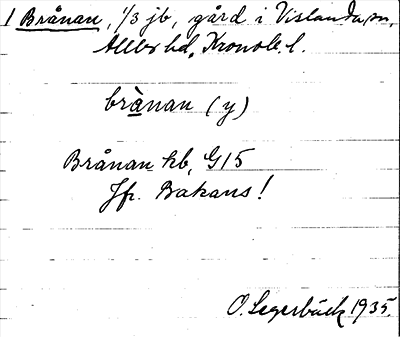 1 Brånan, 1/3 jb, gård i Vislanda sn,
Allbo hd, Kronob. l.
brànan (y)
Brånan kb, G15
Jfr. Bakans!
O. Segerbäck 1935.